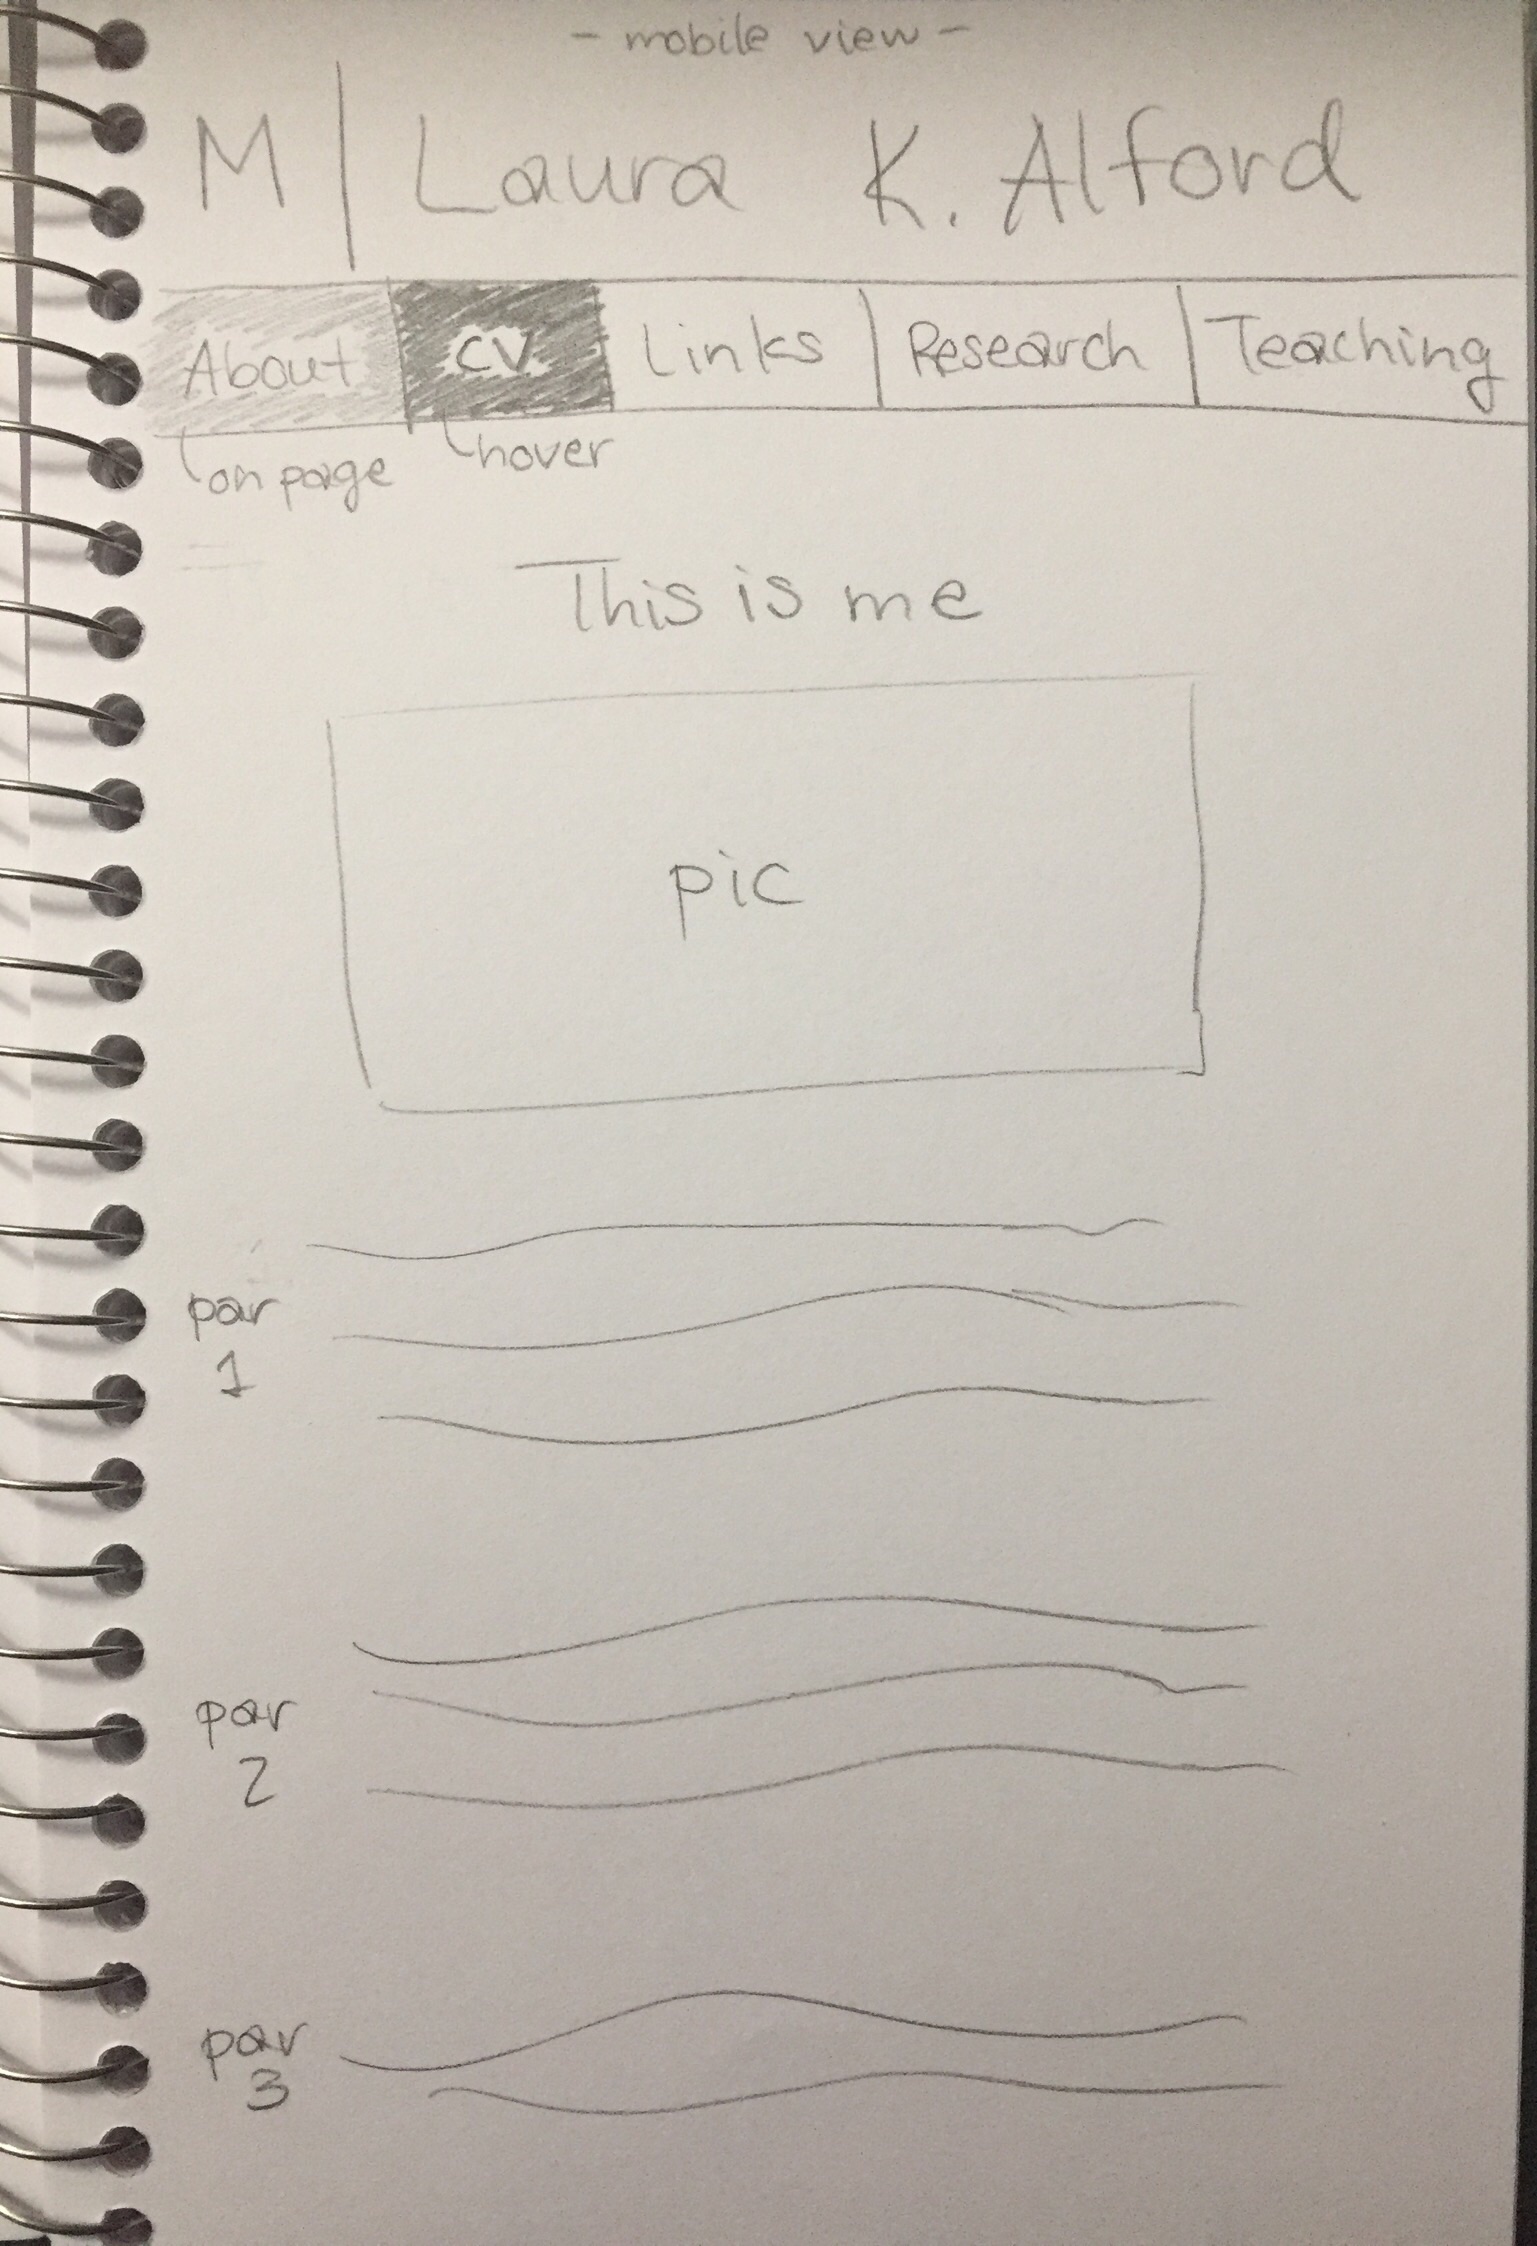 - mobile view -
M | Laura K. Alford
About CV Links | Research | Teaching
on page hover
This is me
pic
par
1
par
2
par
3